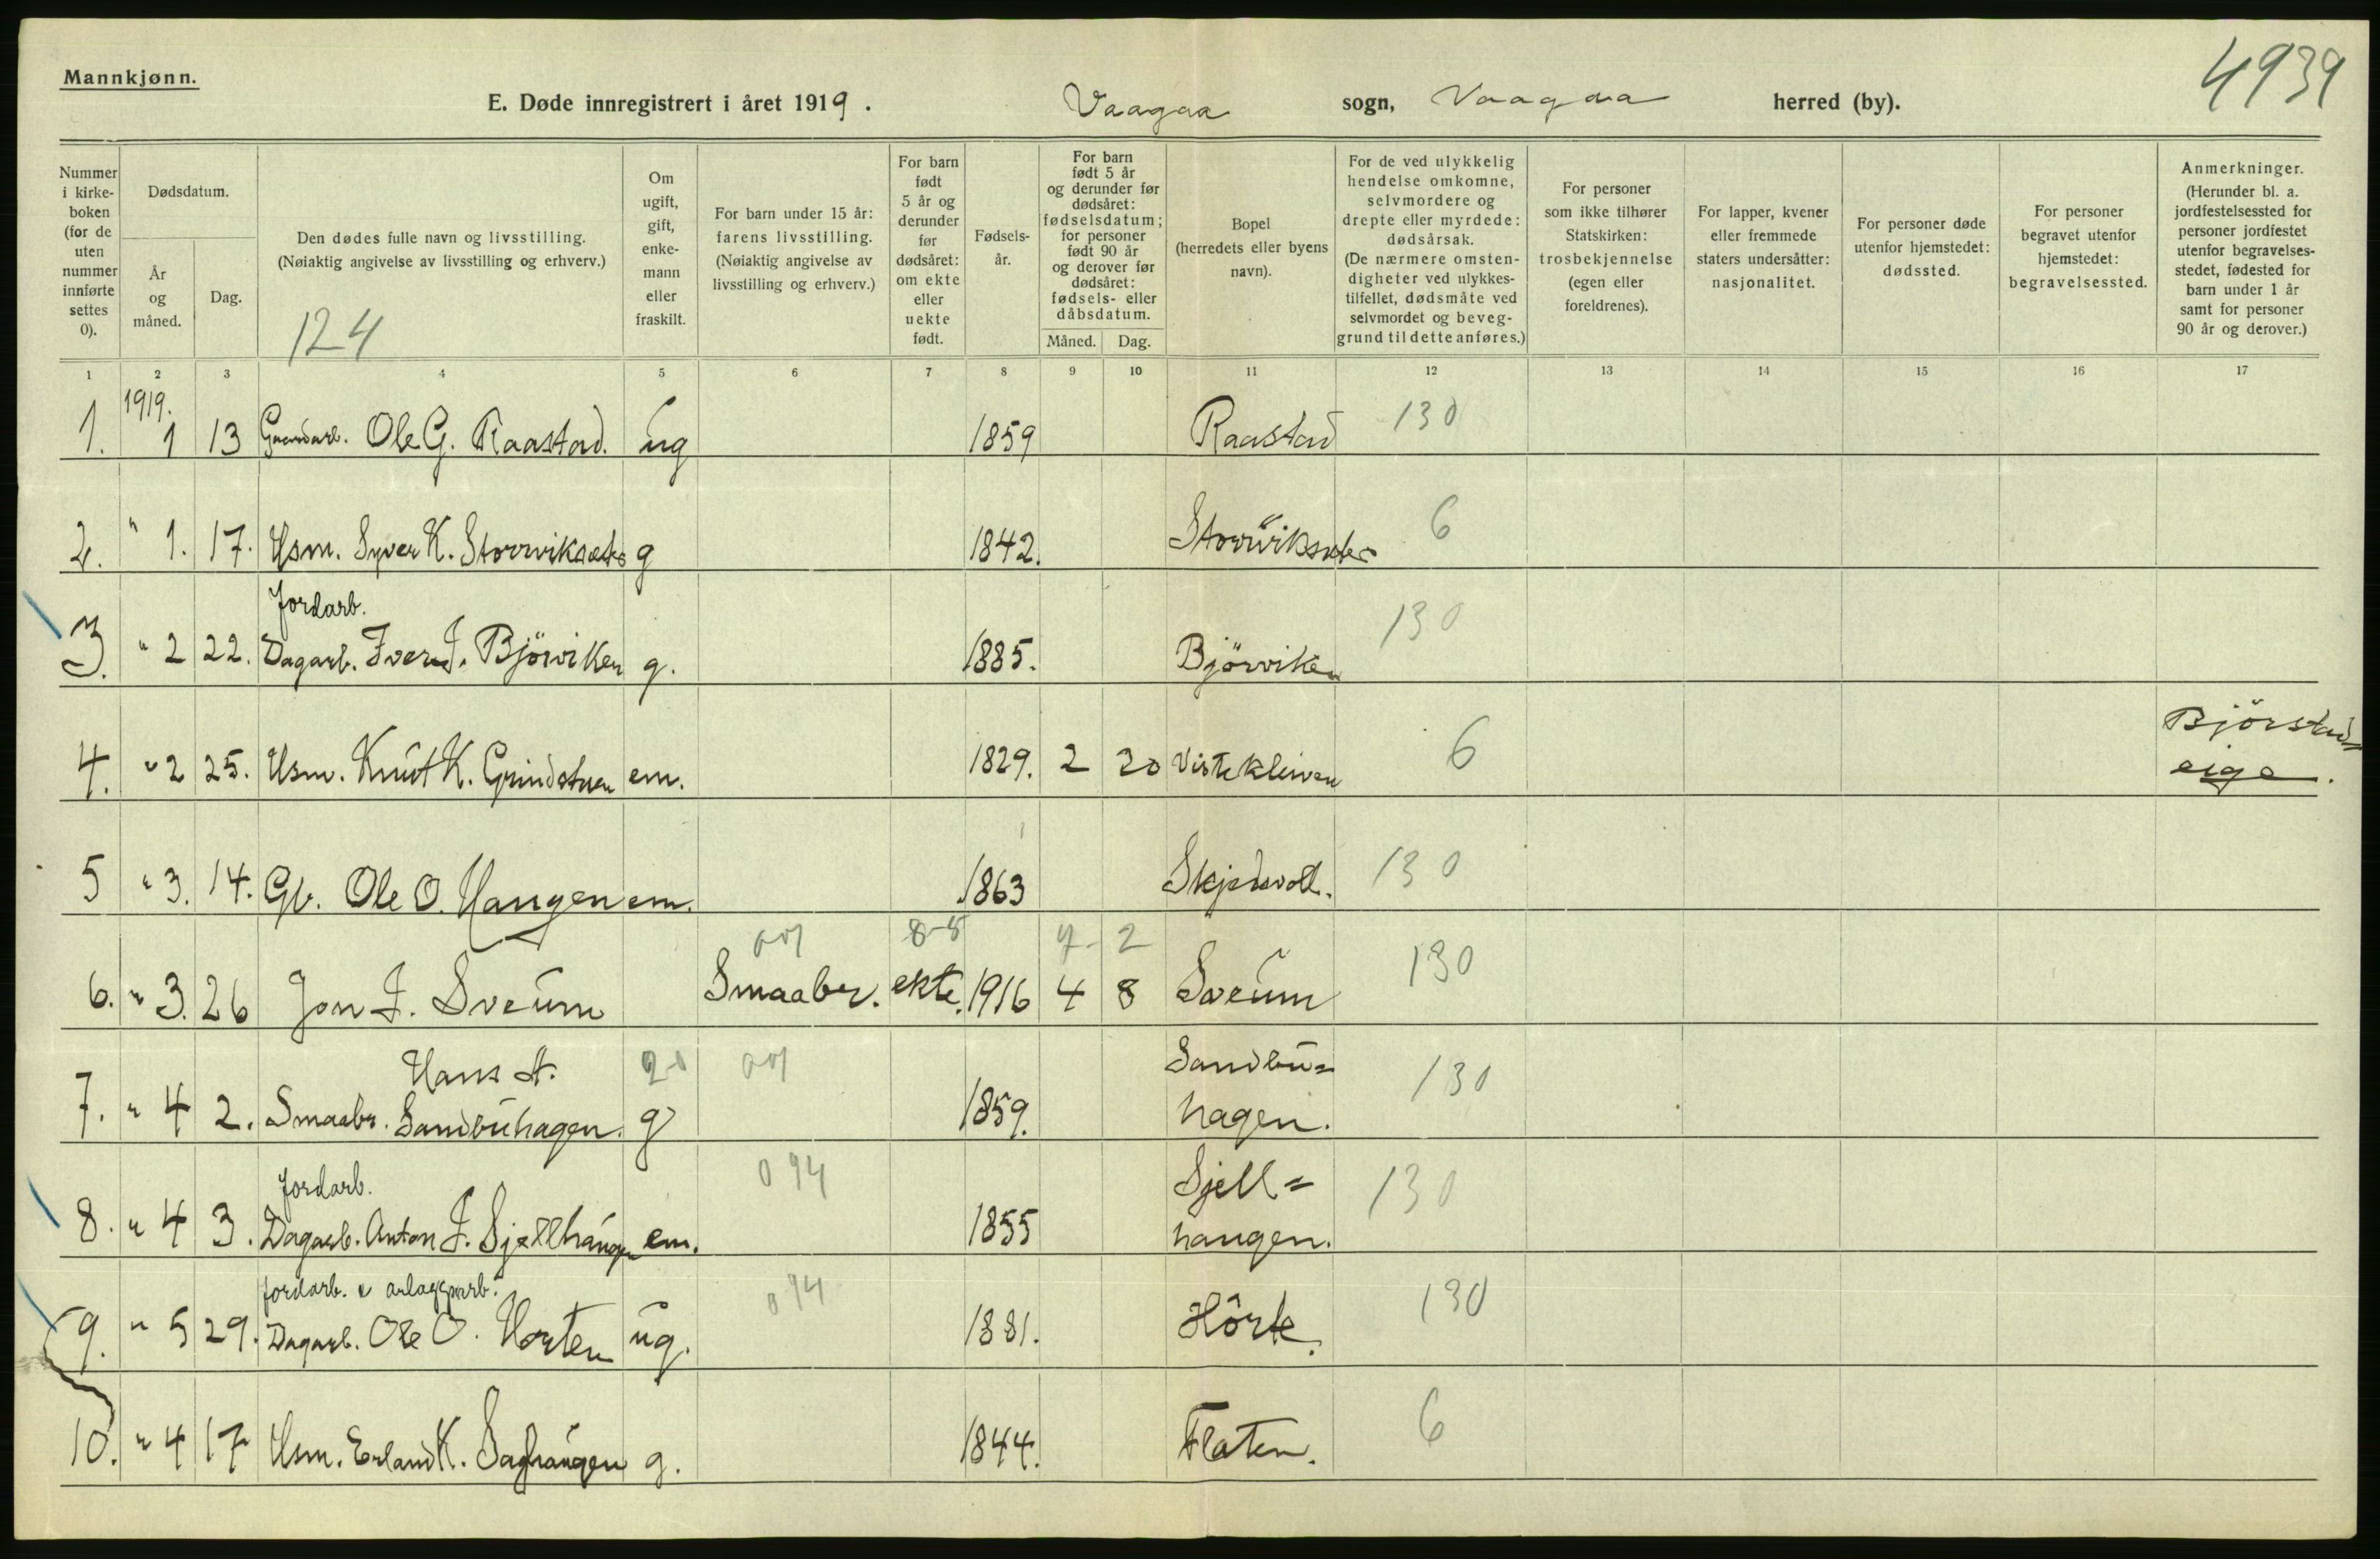 Mannkjønn.
4939
E. Døde innregistrert i året 1919. Vaagaa sogn, Vaagaa herred (by).
Nummer i kirke-boken (for de uten nummer innførte settes 0).
Dødsdatum.
År og måned.
Dag.
Den dødes fulle navn og livsstilling.
(Nøiaktig angivelse av livsstilling og erhverv.)
124
Om ugift, gift, enke-mann eller fraskilt.
For barn under 15 år: farens livsstilling. (Nøiaktig angivelse av livsstilling og erhverv.)
For barn født 5 år og derunder før dødsåret: om ekte eller uekte født.
Fødsels-år.
For barn født 5 år og derunder før dødsåret: fødselsdatum; for personer født 90 år og derover før dødsåret: fødsels- eller dåbsdatum.
Måned. Dag.
Bopel (herredets eller byens navn).
For de ved ulykkelig hendelse omkomne, selvmordere og drepte eller myrdede: dødsårsak. (De nærmere omsten-digheter ved ulykkes-tilfellet, dødsmåte ved selvmordet og beveg-grund til dette anføres.)
For personer som ikke tilhører Statskirken: trosbekjennelse (egen eller foreldrenes).
For lapper, kvener eller fremmede staters undersåtter: nasjonalitet.
For personer døde utenfor hjemstedet: dødssted.
For personer begravet utenfor hjemstedet: begravelsessted.
Anmerkninger. (Herunder bl. a. jordfestelsessted for personer jordfestet utenfor begravelses-stedet, fødested for barn under 1 år samt for personer 90 år og derover.)
1 2 3 4 5 6 7 8 9 10 11 12 13 14 15 16 17
1919.
1. 1 13 Gaardarb. Ole G. Raastad. ug 1859 Raastad 130
2. " 1. 17. Usm. Syver K. Storvikseter g 1842. Storvikseter 6
Jordarb.
3. " 2 22. Dagarb. Iver J. Björviken g. 1885. Björviken 130
4. " 2 25. Usm. Knut K. Grindstuen em. 1829. 2 20 Vistekleiven 6 Björstad=
eige.
5 " 3. 14. Gb. Ole O. Haugen em. 1863 Skjedsvoll. 130
8-8 4-2
6. " 3. 26 Jon J. Sveum Smaabr. ekte. 1916 4 8 Sveum 130
Hans A. Sandbu=
7. " 4 2. Smaabr. Sandbuhagen. g 1859. hagen. 130
Jordarb. 094 Sjell=
8. " 4 3. Dagarb. Anton J. Sjellhaugen em. 1855 haugen. 130
Jordarb. & anlæggsarb. 094
9. " 5 29. Dagarb. Ole O. Horten ug. 1881. Hörte. 130
10. " 4 17 Usm. Erland K. Saghaugen g. 1844. Flaten. 6